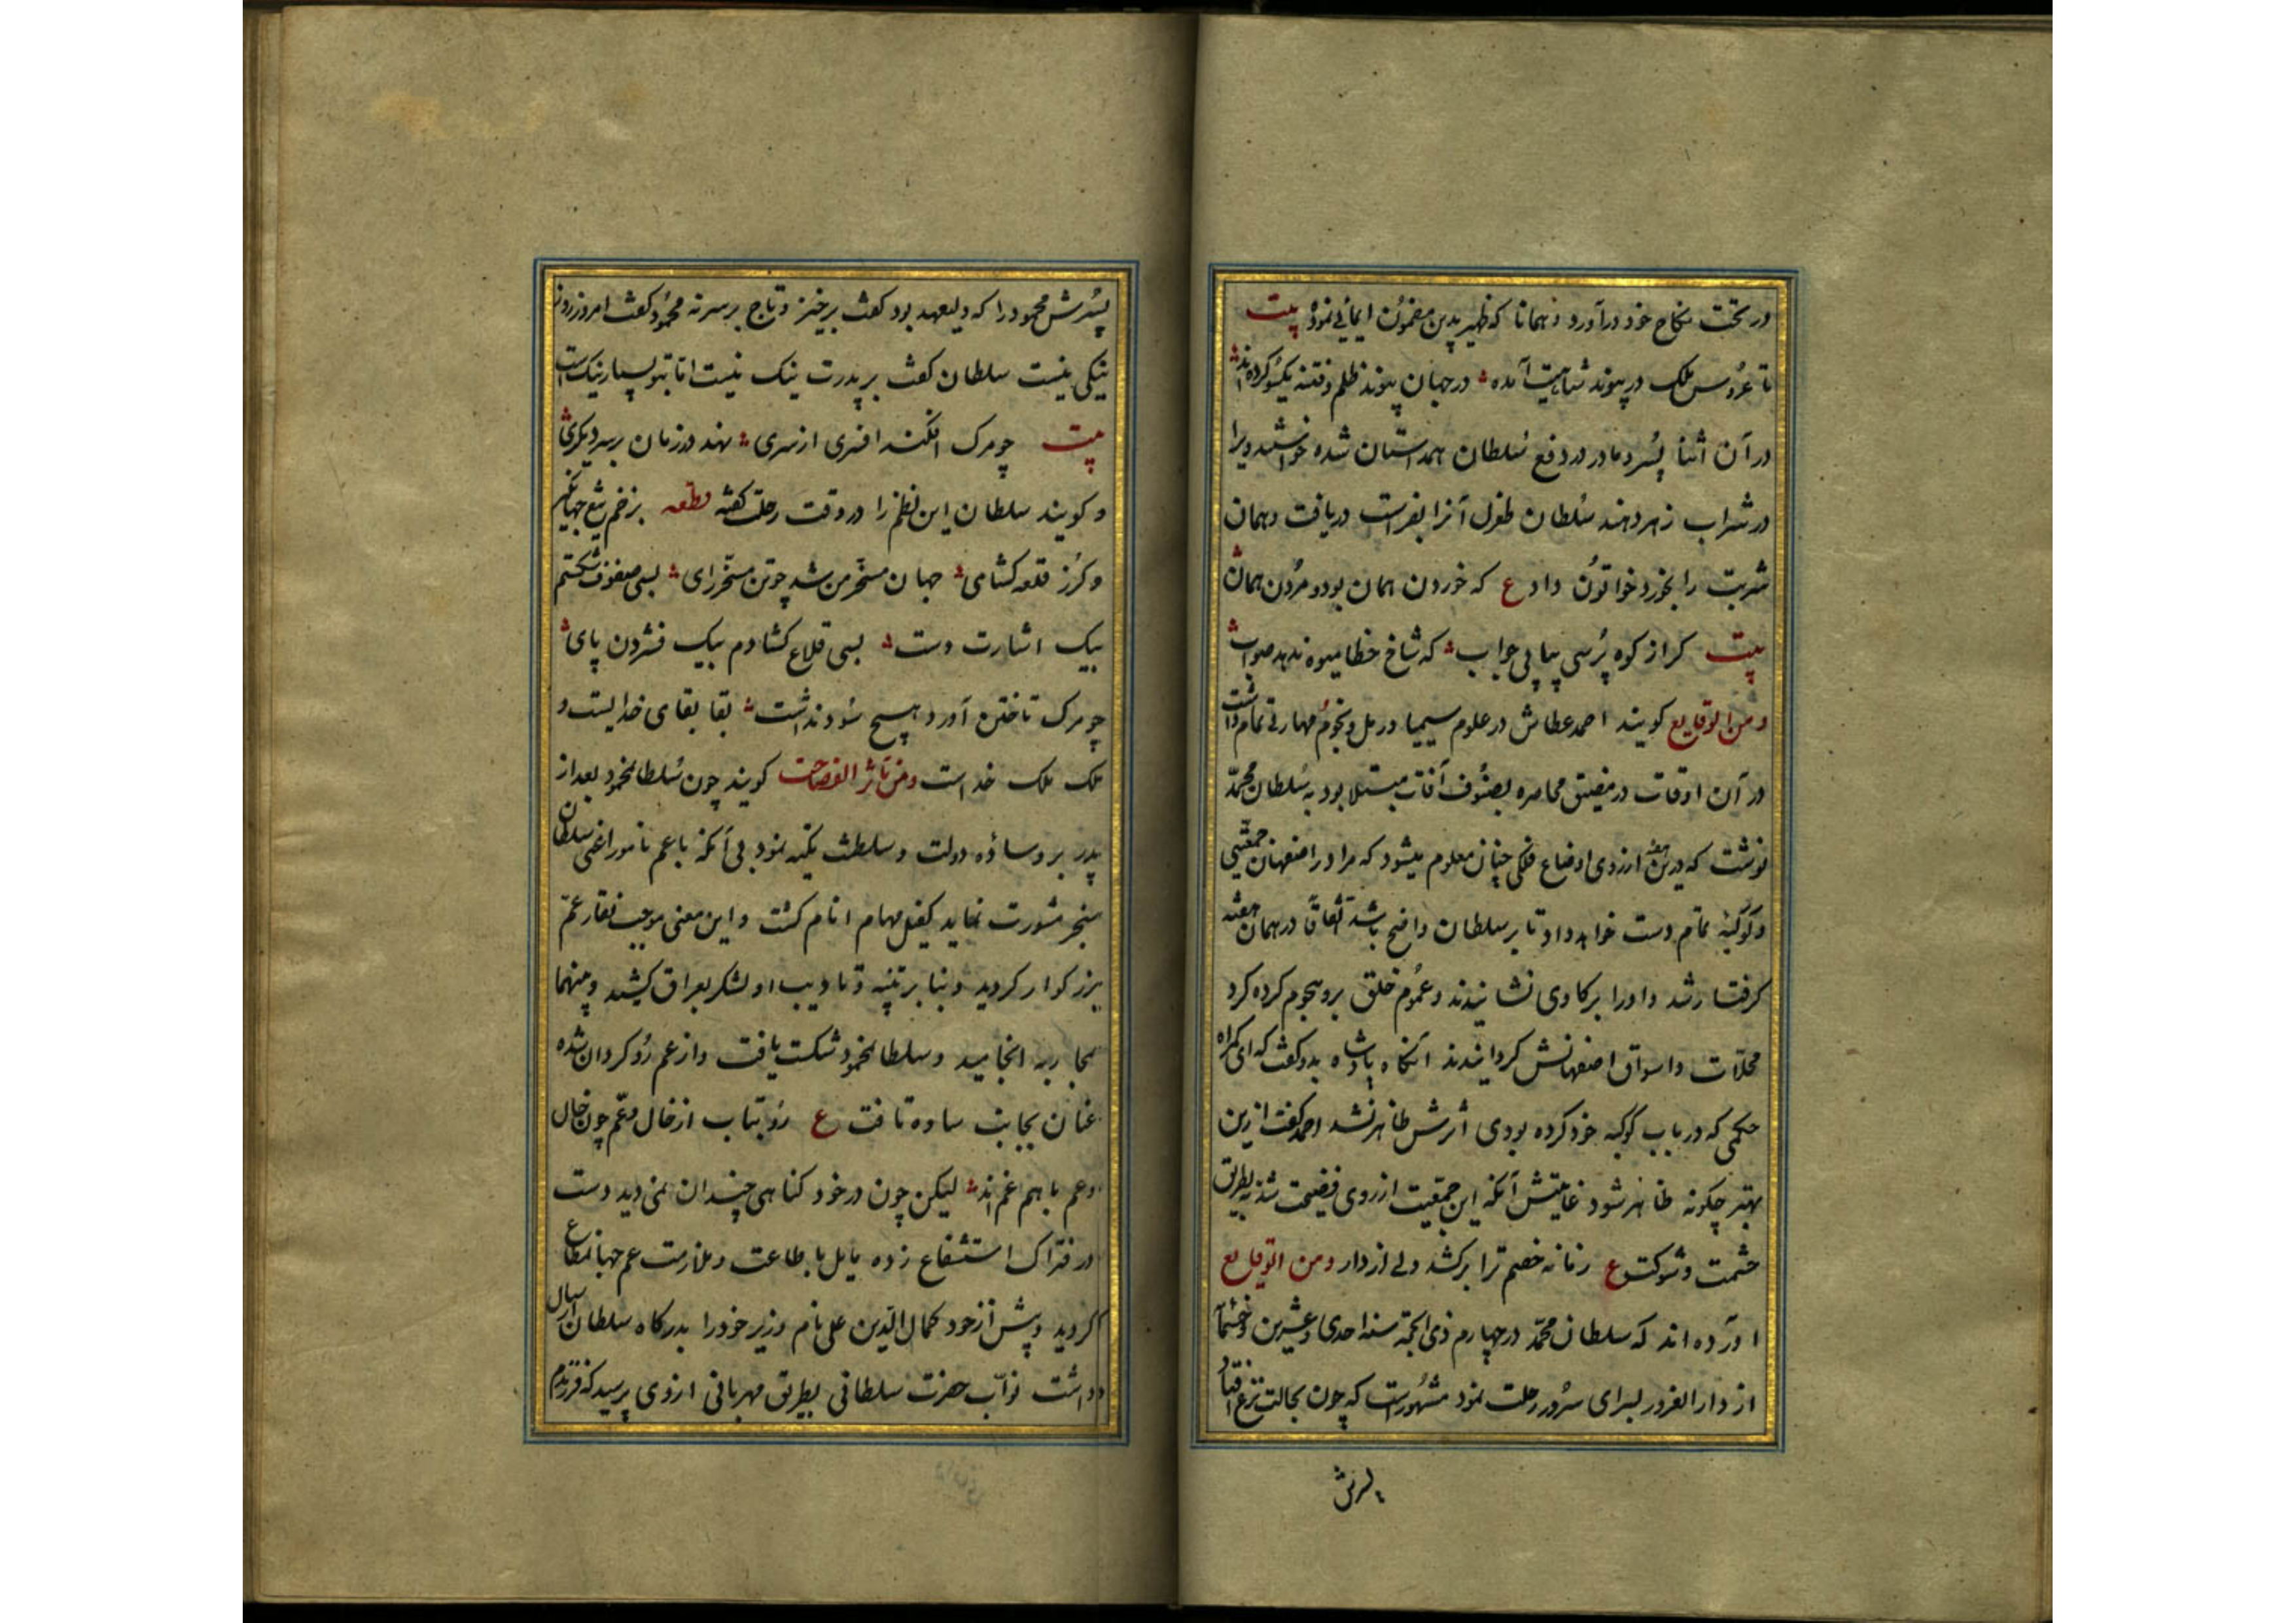 در تحت نکاح خود درآورد و همانا که ظهیر بدین مضمون ایمائی نموده بیت
تا عروس ملک در پیوند شاهیت آمده در جهان پیوند ظلم و فتنه یکسو کرده‌اند
در آن اثنا پسر و مادر در دفع سلطان همداستان شده خواستند ویرا
در شراب زهر دهند سلطان طغرل آنرا بفراست دریافت و همان
شربت را بخورد خواتون داد ع که خوردن همان بود و مردن همان
بیت کر از کوه پرسی بیابی جواب که شاخ خطا میوه ندهد صواب
و من الوقایع کویند احمد عطاش در علوم سیمیا و رمل و نجوم مهارتی تمام داشت
در آن اوقات در مضیق محاصره بصنوف آفات مبتلا بود به سلطان محمّد
نوشت که درین هفته از روی اوضاع فلکی چنان معلوم میشود که مرا در اصفهان جمعیّتی
و کوکبهٔ تمام دست خواهد داد تا بر سلطان واضح باشد اتفاقاً در همان هفته
کرفتار شد و او را بر کاوی نشانیدند و عموم خلق برو هجوم کرده کرد
محلّات و اسواق اصفهانش کردانیدند آنکاه پادشاه بدو کفت که ای کمراه
حکمی که در باب کوکبه خود کرده بودی اثرش ظاهر نشد احمد کفت ازین
بهتر چکونه ظاهر شود غایتش آنکه این جمعیّت از روی فضیحت شد نه بطریق
حشمت و شوکت ع زمانه خصم ترا برکشد ولی از دار و من الوقایع
آورده‌اند که سلطان محمّد در چهارم ذی الحجّه سنه احدی و عشرین و خمسمائة
از دار الغرور بسرای سرور رحلت نمود مشهورست که چون بحالت نزع افتاد
پسرش
پسرش محمود را که ولیعهد بود کفت برخیز و تاج بر سر نه محمود کفت امروز روز
نیکی نیست سلطان کفت بر پدرت نیک نیست اما بتو بسیار نیک است
بیت چو مرک افکند افسری از سری نهد در زمان بر سر دیکری
و کویند سلطان این نظم را در وقت رحلت کفته قطعه بزخم تیغ جهانکیر
و کرز قلعه کشای جهان مسخر من شد چو تن مسخر رای بسی صفوف شکستم
بیک اشارت دست بسی قلاع کشادم بیک فشردن پای
چو مرک تاختن آورد هیچ سود نداشت بقا بقای خدایست و
ملک ملک خداست و من مآثر الفصاحت کویند چون سلطان محمود بعد از
پدر بر وساده دولت و سلطنت تکیه نمود بی آنکه با عم نامور اعنی سلطان
سنجر مشورت نماید کفیل مهام انام کشت و این معنی موجب نقار عمّ
بزرکوار کردید و بنا بر تنبیه و تادیب او لشکر بعراق کشید و مهما
بمحاربه انجامید و سلطان محمود شکست یافت و از عم روکردان شده
عنان بجانب ساوه تافت ع رو بتاب از خال و عمّ چون خال
و عم با هم غم‌اند لیکن چون در خود کناهی چندان نمی دید دست
در فتراک استشفاع زده مایل با طاعت و ملازمت عم جهانمطاع
کردید و پیش از خود کمال الدین علی نام وزیر خود را بدرکاه سلطان ارسال
داشت نوّاب حضرت سلطانی بطریق مهربانی از وی پرسید که فرزندم